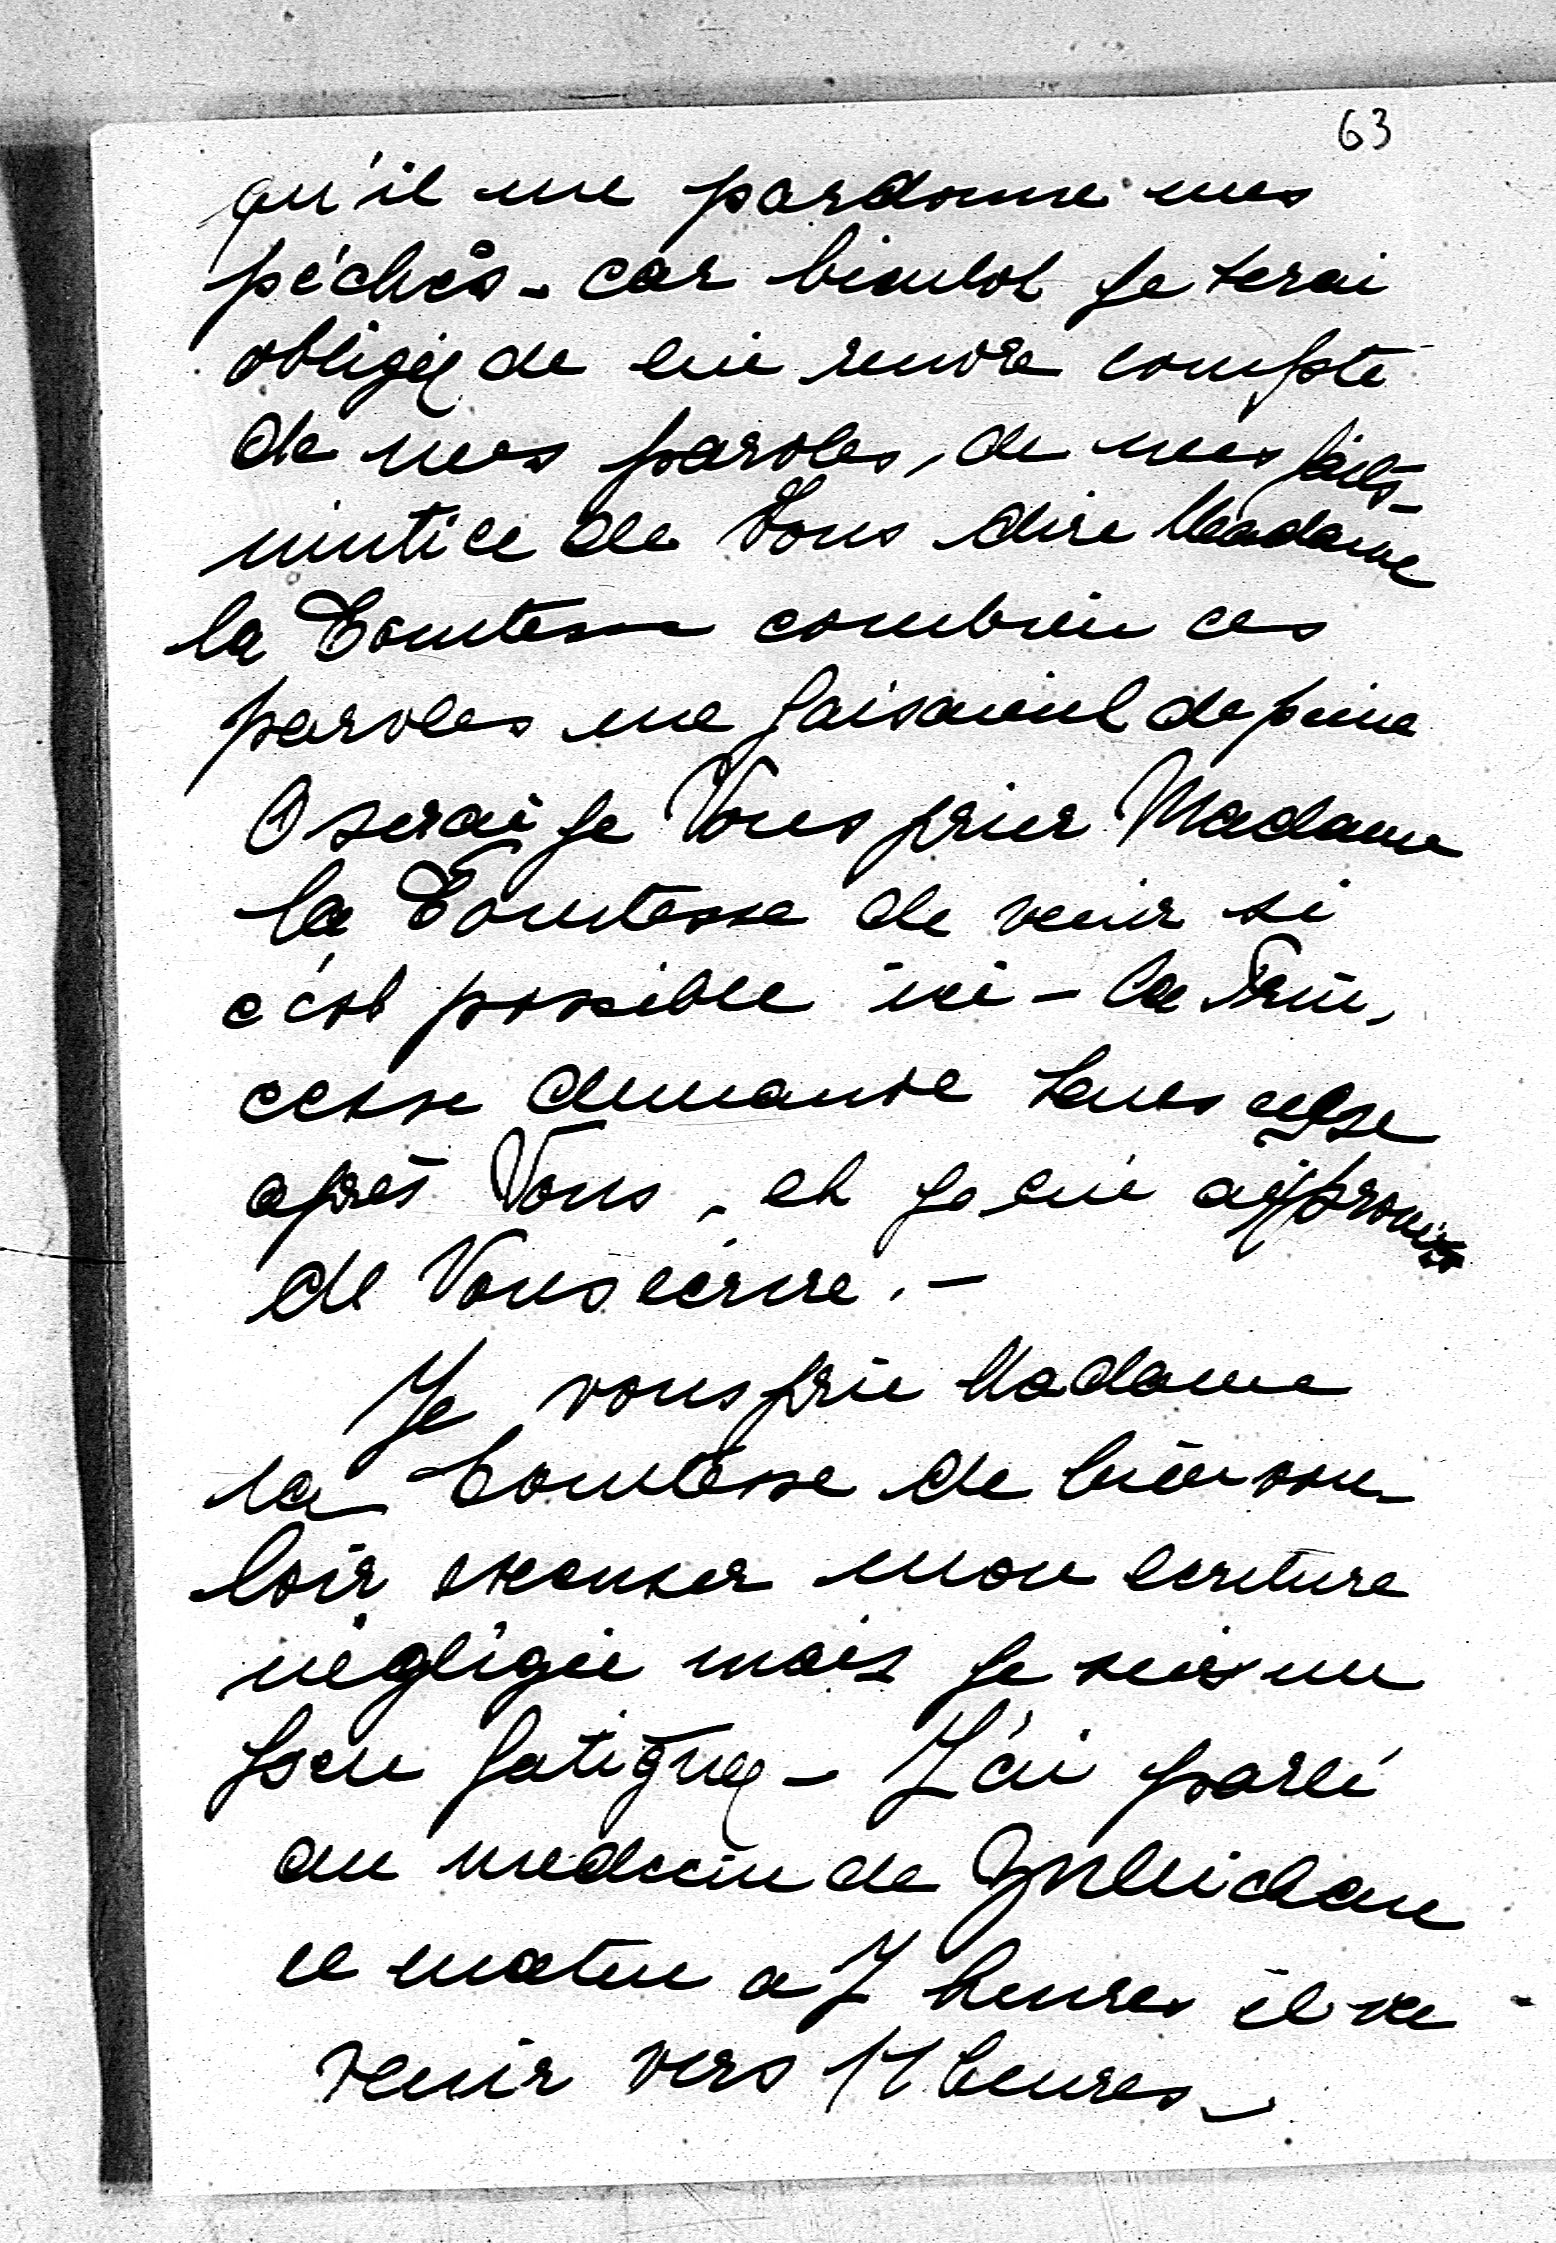 63
qu'il me pardonne mes
péchés - car bientot je serai
obligée de lui rendre compte
de mes paroles, de mes faits -
inutile de Vous dire Madame
la Comtesse combien ces
paroles me faisaient de peine
Oserai je Vous prier Madame
la Comtesse de venir si
c'est possible ici - la Prin-
cesse demande sans cesse
après Vous, et je lui ai promis
de Vous écrire. -
Je vous prie Madame
la Comtesse de bien vou-
loir excuser mon ecriture
négligée mais je suis un
peu fatiguée - J'ai parlé
au medecin de Züllichau
ce matin a 7 heures il va
venir vers 11 heures -